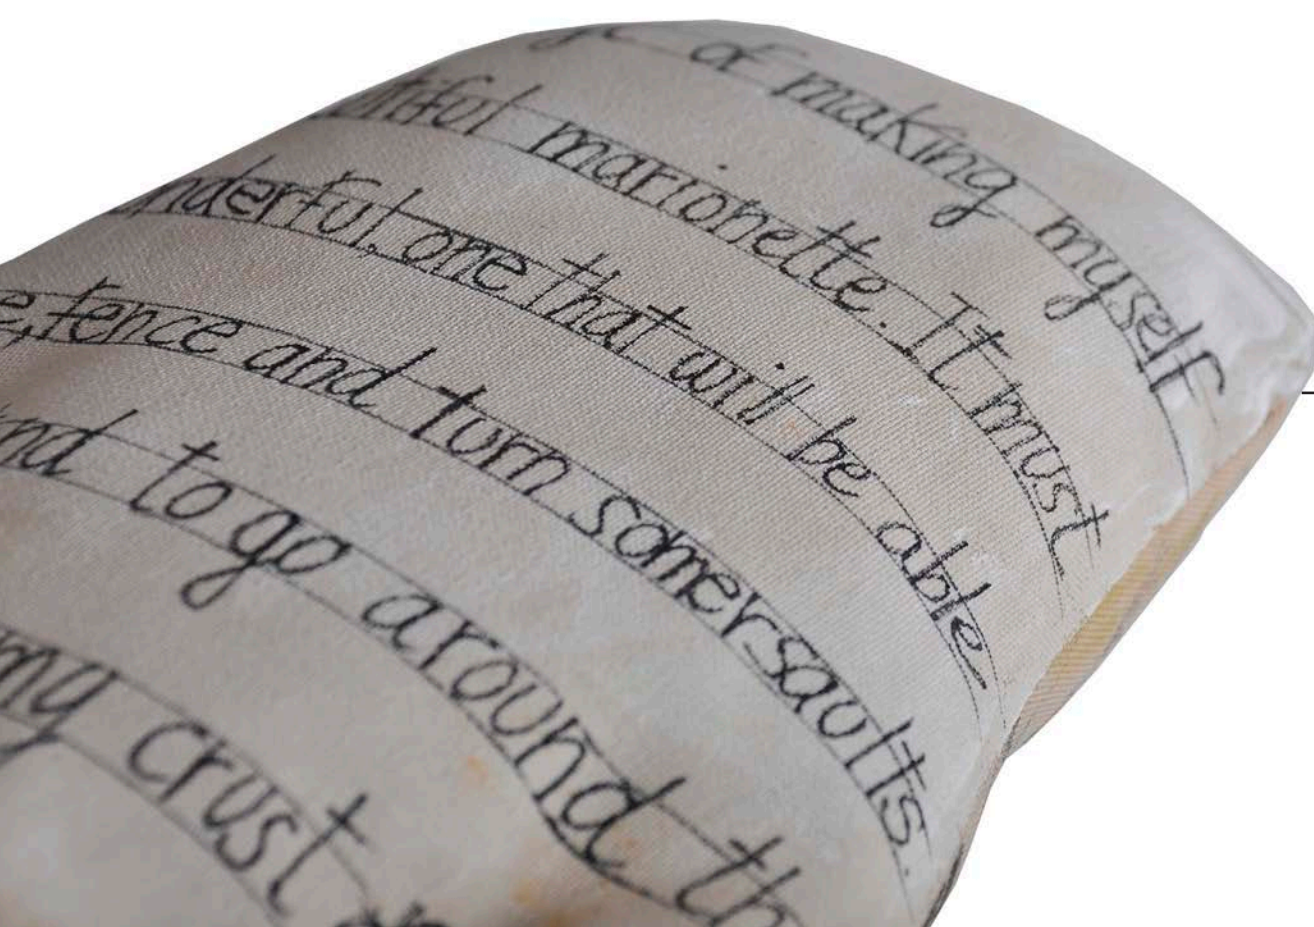 of making myself
marionette. It must
one that will be able
fence and turn somersaults.
to go around
my crust